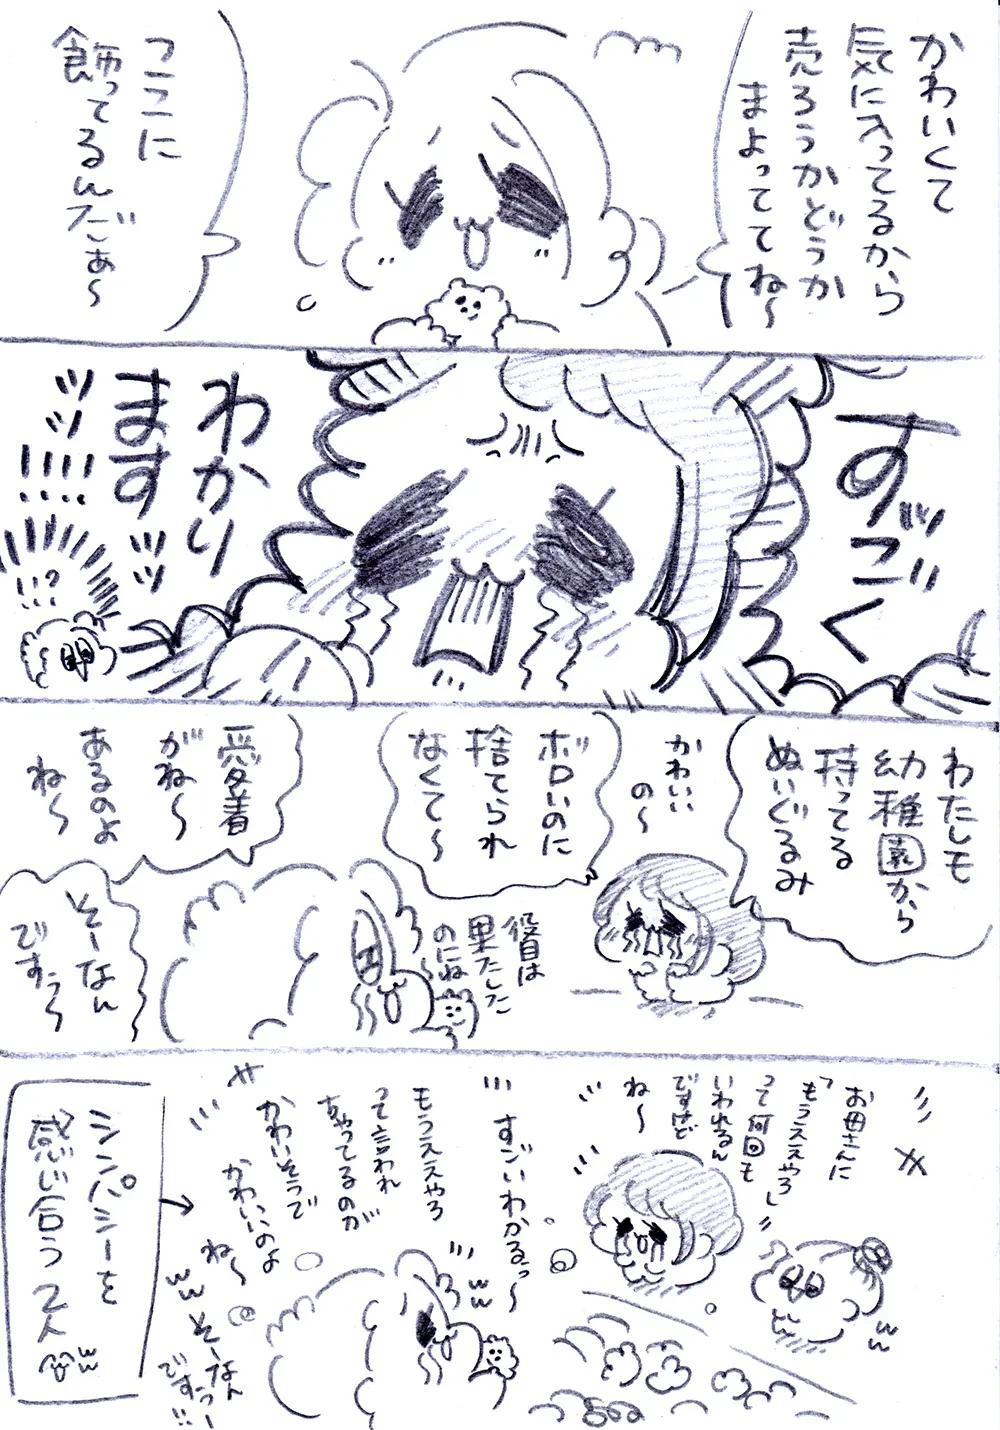 かわいくて
気に入ってるから
売ろうかどうか
まよっててね〜
ここに
飾ってるんだぁ〜
すッッごく
わかり
ますッッ
ッッ!!!!
!!?
わたしも
幼稚園から
持ってる
ぬいぐるみ
かわいい
の〜
ボロいのに
捨てられ
なくて〜
役目は
果たした
のにね
愛着
がね〜
あるのよ
ね〜
そーなん
ですっ〜
お母さんに
「もうええやろ」
って何回も
いわれるん
ですけど
ね〜
すごいわかるっ〜
もうええやろ
って言われ
ちゃってるのが
かわいそうで
かわいいのよ
ね〜
ww
そーなん
ですっー!!
ww
ww
シンパシーを
感じ合う2人
ww